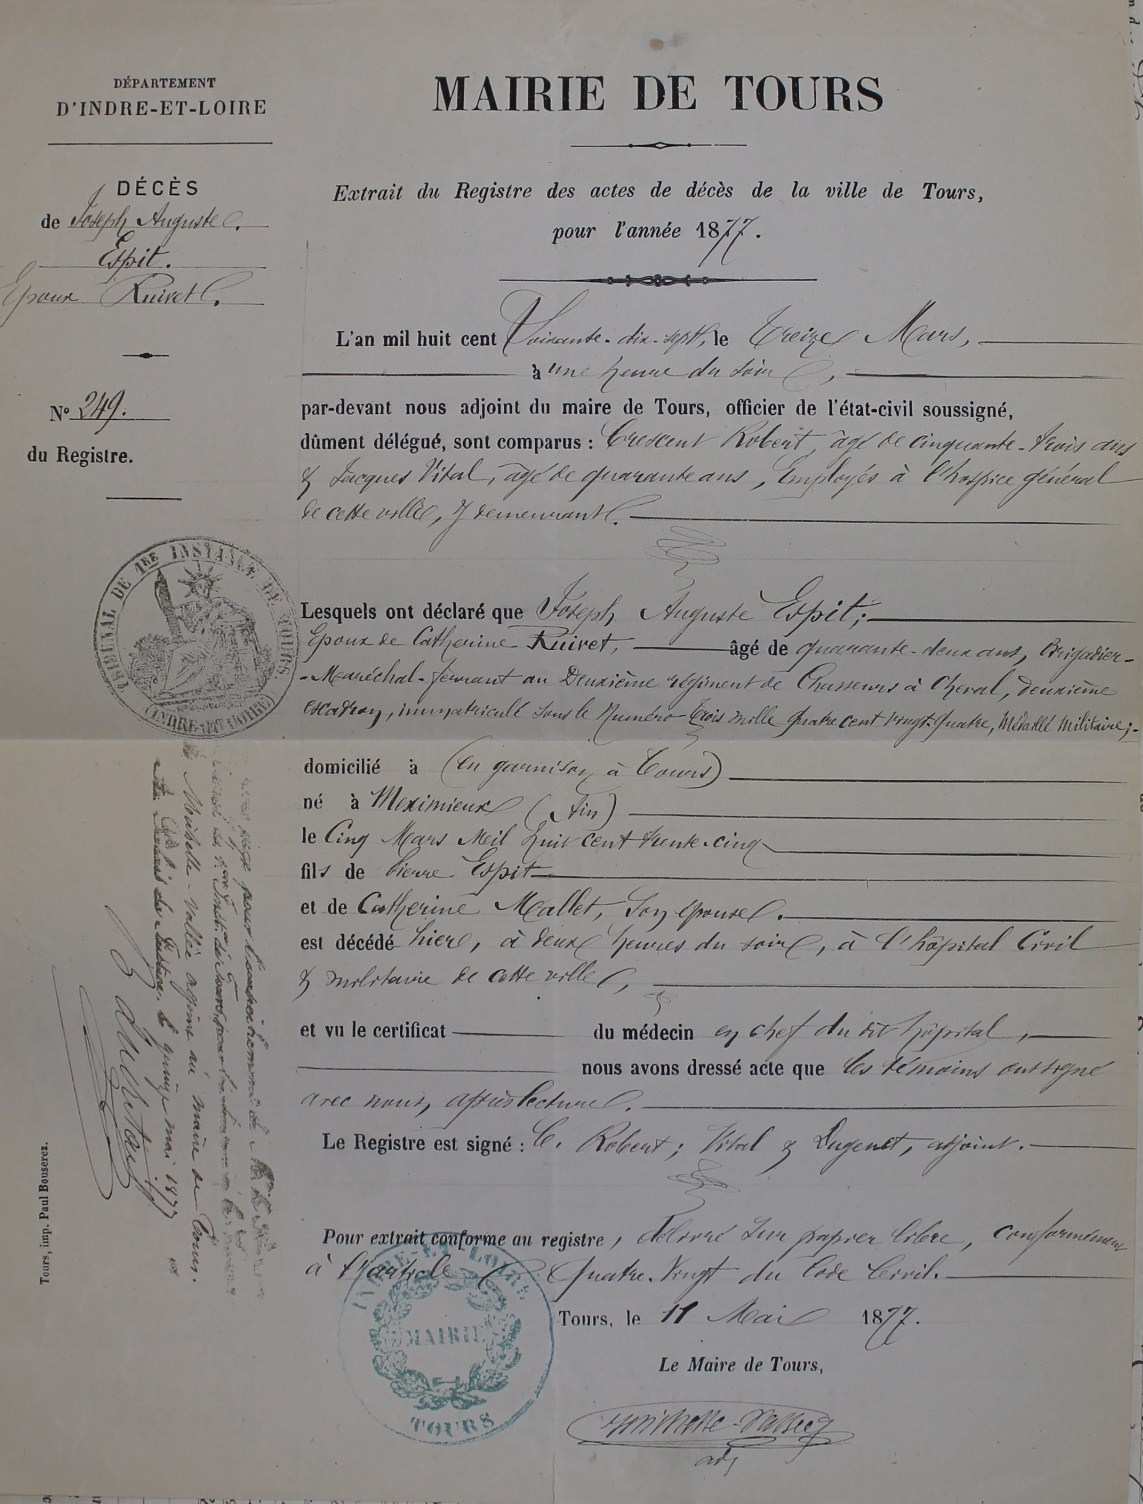 DÉPARTEMENT
D'INDRE-ET-LOIRE
DÉCÈS
de Joseph Auguste
Espit.
Epoux Ruivet.
N° 249.
du Registre.
MAIRIE DE TOURS
Extrait du Registre des actes de décès de la ville de Tours,
pour l'année 1877.
L'an mil huit cent Soixante-dix-sept, le Treize Mars,
à une heure du soir,
par-devant nous adjoint du maire de Tours, officier de l'état-civil soussigné,
dûment délégué, sont comparus : Crescent Robert, âgé de cinquante-trois ans
& Jacques Vital, âgé de quarante ans, Employés à l'hospice général
de cette ville, y demeurant.
Lesquels ont déclaré que Joseph Auguste Espit;
Epoux de Catherine Ruivet, âgé de quarante-deux ans, Brigadier-
-Maréchal-ferrant au Deuxième régiment de Chasseurs à Cheval, deuxième
escadron, immatriculé sous le Numéro Trois mille quatre cent vingt-quatre, Médaillé Militaire;-
domicilié à (en garnison à Tours)
né à Meximieux (Ain)
le Cinq Mars Mil huit cent trente-cinq
fils de Pierre Espit
et de Catherine Mallet, son épouse.
est décédé hier, à deux heures du soir, à l'hôpital Civil
& militaire de cette ville,
et vu le certificat du médecin en chef du dit hôpital,
nous avons dressé acte que les témoins ont signé
avec nous, après lecture.
Le Registre est signé : C. Robert; Vital & Dugenet, adjoint.
Pour extrait conforme au registre, délivré sur papier libre, conformément
à l'article Quatre-Vingt du Code Civil.
Tours, le 11 Mai 1877.
Le Maire de Tours,
adj
TRIBUNAL DE 1RE INSTANCE DE TOURS
(INDRE-ET-LOIRE)
pour
Mirbelle-Vallée adjoint au maire de Tours.
le quinze mai 1877
INDRE-ET-LOIRE
MAIRIE
TOURS
Tours, imp. Paul Bouserez.